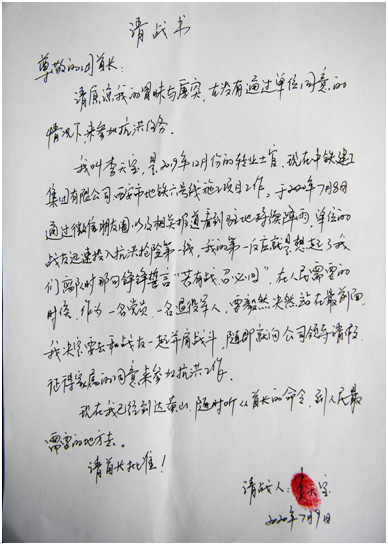 请战书
尊敬的司首长：
请原谅我的冒昧与唐突，在没有通过单位同意的
情况下来参加抗洪任务。
我叫李天宝，是2019年12月份的转业士官，现在中铁建工
集团有限公司西安市地铁六号线施工项目工作，于2020年7月8日
通过微信朋友圈，以及相关报道看到驻地持续降雨，单位的
战友迅速投入抗洪抢险第一线，我的第一反应就是想起了我
们离队时那句铮铮誓言“若有战必回”，在人民需要的
时候，作为一名党员，一名退役军人，要毅然决然站在最前面，
我决定要去和战友一起并肩战斗，随即就向公司领导请假，
征得家属的同意来参加抗洪工作。
现在我已经到达黄山，随时听从首长的命令，到人民最
需要的地方去。
请首长批准！
请战人：李天宝
2020年7月9日